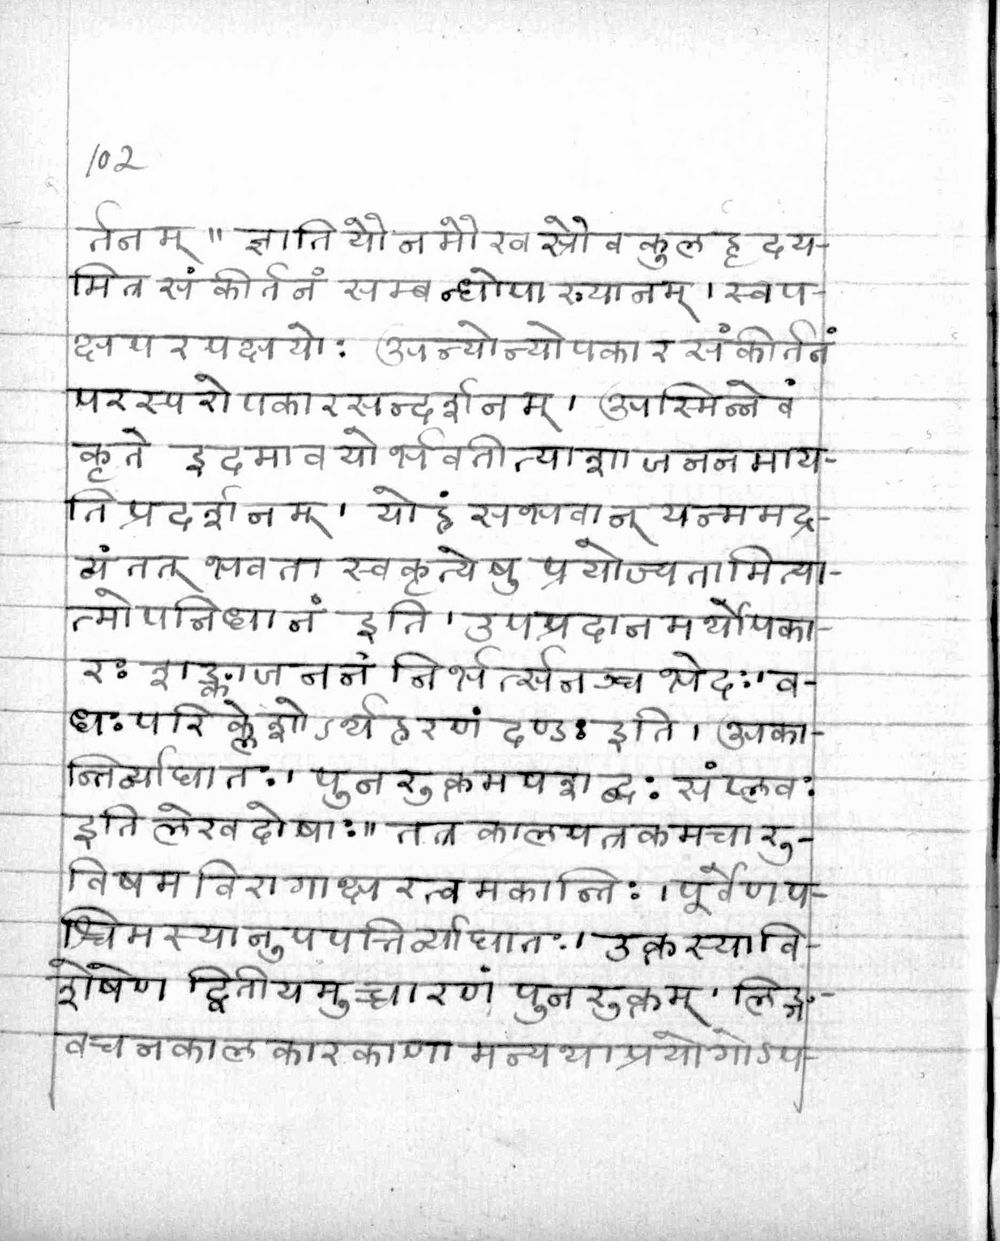 102
र्तनम् ॥ ज्ञातियौनमौखस्रौवकुलहृदय-
मित्रसंकीर्तनं सम्बन्धोपाख्यानम् । स्वप-
क्षपरपक्षयोः अन्योन्योपकारसंकीर्तनं
परस्परोपकारसन्दर्शनम् । अस्मिन्नेवं
कृते इदमावयोर्भवतीत्याशाजननमाय-
तिप्रदर्शनम् । योहं सभवान् यन्ममद्र-
व्यं तत् भवता स्वकृत्येषु प्रयोज्यतामित्या-
त्मोपनिधानं इति । उपप्रदानमर्थोपका-
रः शङ्काजननं निर्भर्त्सनञ्च भेदः । व-
धः परिक्लेशोऽर्थहरणं दण्डः इति । अका-
न्तिर्व्याघातः । पुनरुक्तमपशब्दः संप्लवः
इति लेखदोषाः ॥ तत्र कालपत्रकमचारु-
विषमविरागाक्षरत्वमकान्तिः । पूर्वेणप-
श्चिमस्यानुपपत्तिर्व्याघातः । उक्तस्यावि-
शेषेण द्वितीयमुच्चारणं पुनरुक्तम् । लिङ्ग-
वचनकालकारकाणामन्यथाप्रयोगोऽप-